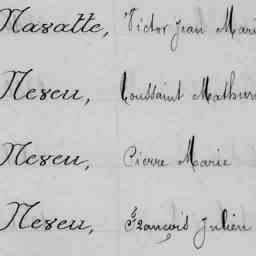 Nasatte, Victor Jean Mari
Neseu, Toussaint Mathur
Neseu, Pierre Marie
Neseu, François Julien